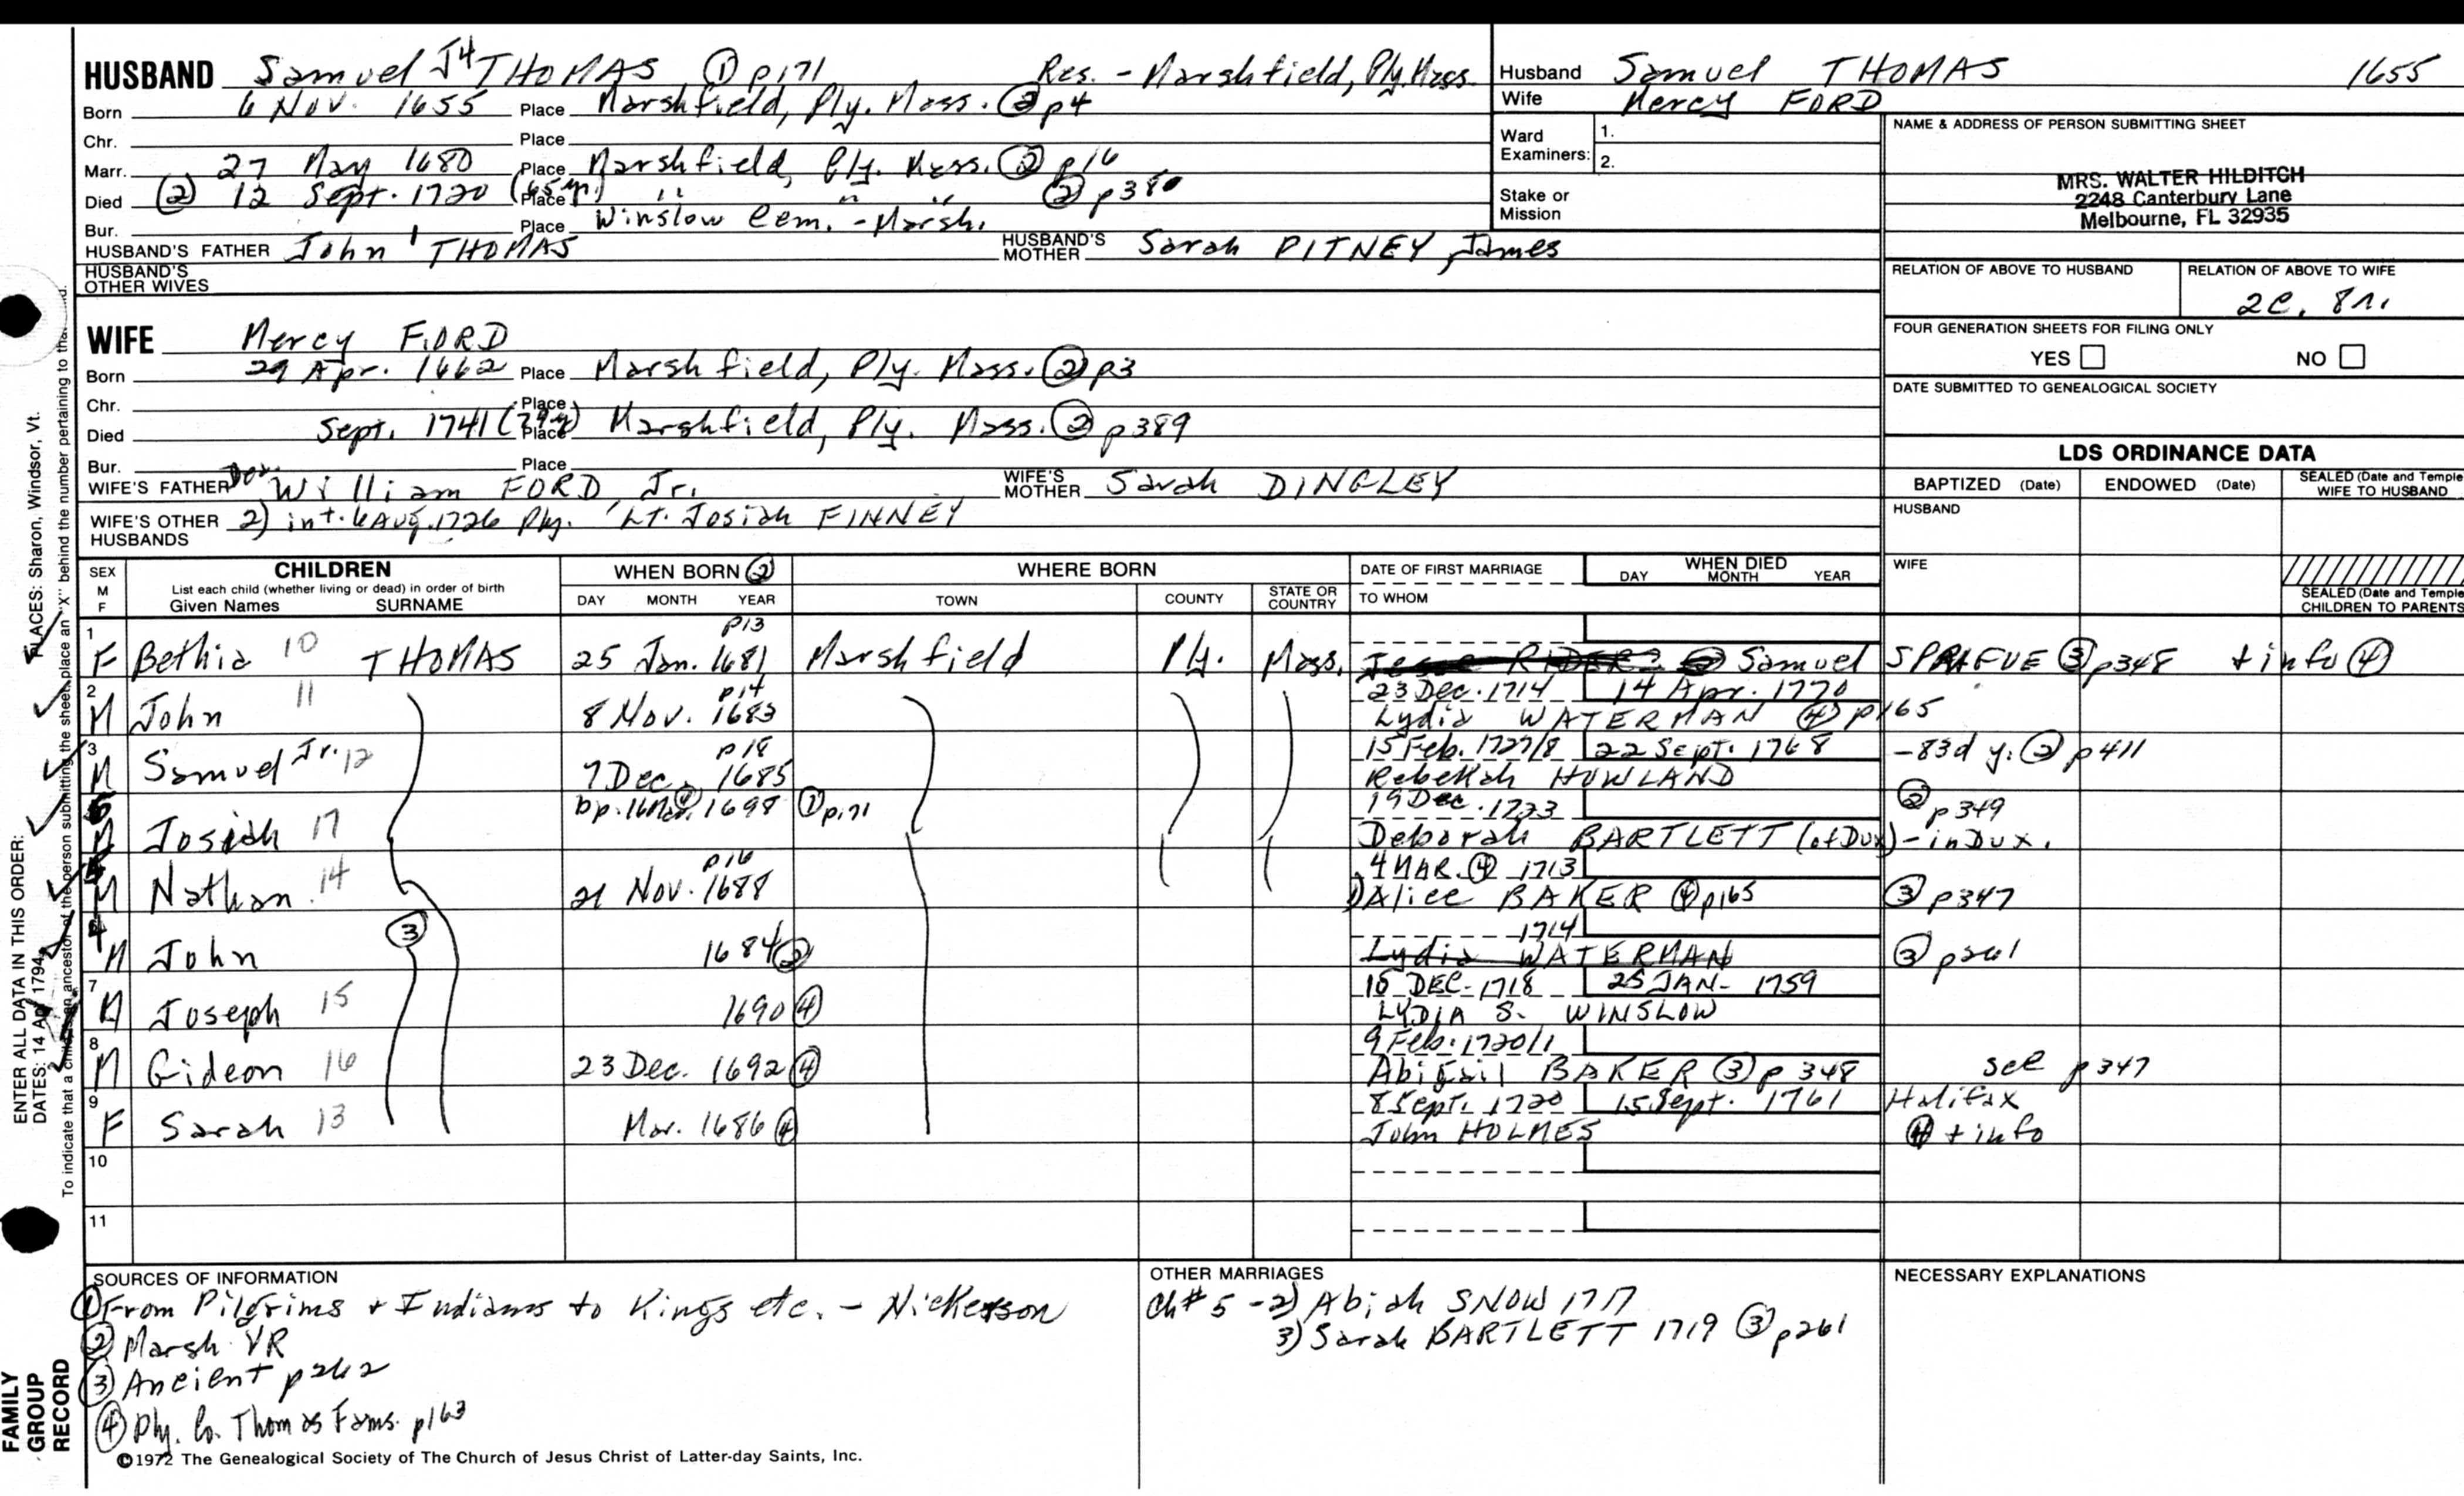 HUSBAND Samuel J4 THOMAS ① p171 Res. - Marshfield, Ply. Mass.
Born 6 Nov. 1655 Place Marshfield, Ply. Mass. ② p4
Chr. Place
Marr. 27 May 1680 Place Marshfield, Ply. Mass. ② p16
Died ② 12 Sept. 1720 (65 yr) Place " " " ② p380
Bur. Place Winslow Cem. - Marsh.
HUSBAND'S FATHER John THOMAS HUSBAND'S MOTHER Sarah PITNEY, James
HUSBAND'S OTHER WIVES
Husband Samuel THOMAS 1655
Wife Mercy FORD
Ward Examiners: 1.
2.
Stake or Mission
NAME & ADDRESS OF PERSON SUBMITTING SHEET
MRS. WALTER HILDITCH
2248 Canterbury Lane
Melbourne, FL 32935
RELATION OF ABOVE TO HUSBAND RELATION OF ABOVE TO WIFE
2C. 8r.
FOUR GENERATION SHEETS FOR FILING ONLY
YES NO
DATE SUBMITTED TO GENEALOGICAL SOCIETY
WIFE Mercy FORD
Born 29 Apr. 1662 Place Marshfield, Ply. Mass. ② p3
Chr. Place
Died Sept. 1741 (79 y) Place Marshfield, Ply. Mass. ② p389
Bur. Place
WIFE'S FATHER William FORD Jr. WIFE'S MOTHER Sarah DINGLEY
WIFE'S OTHER HUSBANDS 2) int. 6 Aug. 1726 Ply. Lt. Josiah FINNEY
LDS ORDINANCE DATA
BAPTIZED (Date) ENDOWED (Date) SEALED (Date and Temple WIFE TO HUSBAND
HUSBAND
WIFE
SEALED (Date and Temple CHILDREN TO PARENTS
SEX M F CHILDREN WHEN BORN ② WHERE BORN DATE OF FIRST MARRIAGE WHEN DIED
List each child (whether living or dead) in order of birth
Given Names SURNAME DAY MONTH YEAR TOWN COUNTY STATE OR COUNTRY TO WHOM DAY MONTH YEAR
p13
1 F Bethia 10 THOMAS 25 Jan. 1681 Marshfield Ply. Mass. Samuel SPRAGUE ③ p348 + info ④
p14 23 Dec. 1714 14 Apr. 1770
2 M John 11 8 Nov. 1683 Lydia WATERMAN ④ p165
p18 15 Feb. 1727/8 22 Sept. 1768 - 83d y. ② p411
3 M Samuel Jr. 12 7 Dec. 1685 Rebekah HOWLAND
bp. 16 Mar. ④ 1698 ① p171 19 Dec. 1723 ② p349
M Josiah 17 Deborah BARTLETT (of Dux) - in Dux.
p16 4 MAR. ④ 1713
M Nathan 14 21 Nov. 1688 1) Alice BAKER ④ p165 ③ p347
1714
M John ③ 1684 ② Lydia WATERMAN ③ p261
15 DEC. 1718 25 JAN- 1759
7 M Joseph 15 1690 ④ LYDIA S. WINSLOW
9 Feb. 1720/1
8 M Gideon 16 23 Dec. 1692 ④ Abigail BAKER ③ p 348 see p347
8 Sept. 1720 15 Sept. 1761 Halifax
9 F Sarah 13 Mar. 1686 ④ John HOLMES ④ + info
10
11
SOURCES OF INFORMATION
① From Pilgrims + Indians to Kings etc. - Nickerson
② Marsh VR
③ Ancient p262
④ Ply. Co. Thomas Fams. p163
OTHER MARRIAGES
Ch# 5 - 2) Abiah SNOW 1717
3) Sarah BARTLETT 1719 ③ p261
NECESSARY EXPLANATIONS
©1972 The Genealogical Society of The Church of Jesus Christ of Latter-day Saints, Inc.
FAMILY GROUP RECORD
ENTER ALL DATA IN THIS ORDER:
DATES: 14 Apr 1794
PLACES: Sharon, Windsor, Vt.
To indicate that a child is an ancestor of the person submitting the sheet, place an "X" behind the number pertaining to tha